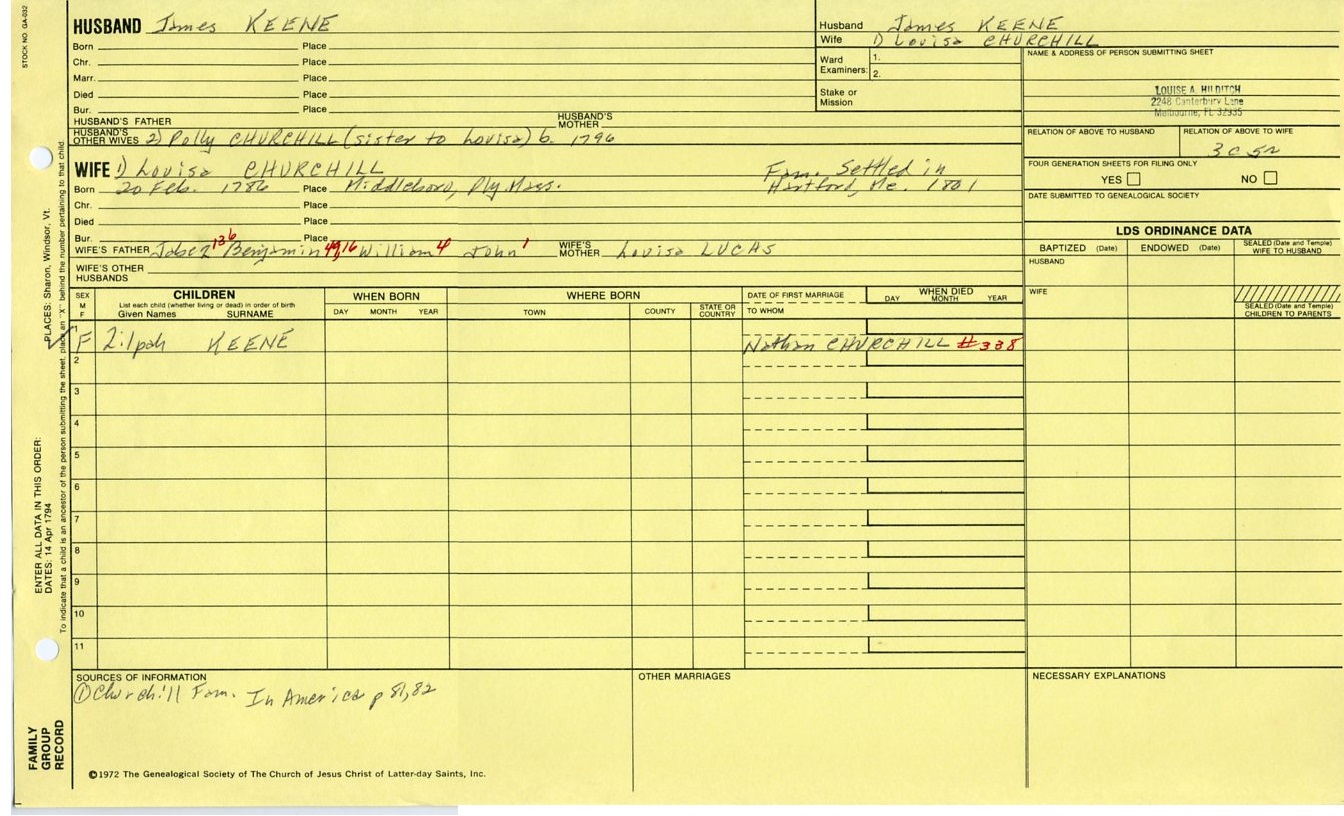 STOCK NO. GA-032
HUSBAND James KEENE
Born Place
Chr. Place
Marr. Place
Died Place
Bur. Place
HUSBAND'S FATHER HUSBAND'S MOTHER
HUSBAND'S OTHER WIVES 2) Polly CHURCHILL (sister to Lovisa) b. 1796
WIFE 1) Lovisa CHURCHILL
Born 20 Feb. 1786 Place Middleboro, Ply. Mass.
Fam. Settled in
Hartford, Me. 1801
Chr. Place
Died Place
Bur. Place
WIFE'S FATHER Jabez 136 Benjamin William 4 John 1 WIFE'S MOTHER Lovisa LUCAS
WIFE'S OTHER HUSBANDS
Husband James KEENE
Wife 1) Lovisa CHURCHILL
Ward Examiners: 1.
2.
Stake or Mission
NAME & ADDRESS OF PERSON SUBMITTING SHEET
LOUISE A. HILDITCH
2248 Canterbury Lane
Melbourne, FL 32935
RELATION OF ABOVE TO HUSBAND RELATION OF ABOVE TO WIFE
3c5r
FOUR GENERATION SHEETS FOR FILING ONLY
YES NO
DATE SUBMITTED TO GENEALOGICAL SOCIETY
LDS ORDINANCE DATA
BAPTIZED (Date) ENDOWED (Date) SEALED (Date and Temple) WIFE TO HUSBAND
HUSBAND
WIFE
SEALED (Date and Temple) CHILDREN TO PARENTS
SEX M F
CHILDREN
List each child (whether living or dead) in order of birth
Given Names SURNAME
WHEN BORN
DAY MONTH YEAR
WHERE BORN
TOWN COUNTY STATE OR COUNTRY
DATE OF FIRST MARRIAGE
TO WHOM
WHEN DIED
DAY MONTH YEAR
1 F Zilpah KEENE Nathan CHURCHILL #338
2
3
4
5
6
7
8
9
10
11
SOURCES OF INFORMATION
① Churchill Fam. In America p 81,82
OTHER MARRIAGES
NECESSARY EXPLANATIONS
©1972 The Genealogical Society of The Church of Jesus Christ of Latter-day Saints, Inc.
FAMILY GROUP RECORD
ENTER ALL DATA IN THIS ORDER:
DATES: 14 Apr 1794
PLACES: Sharon, Windsor, Vt.
To indicate that a child is an ancestor of the person submitting the sheet, place an "X" behind the number pertaining to that child.